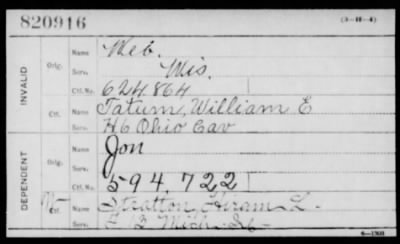 820916
(3-H-4)
INVALID
Orig.
Name Web.
Serv. Wis.
Ctf. No. 624864
Ctf.
Name Tatum, William E
Serv. H 6 Ohio Cav
DEPENDENT
Orig.
Name Jon
Serv.
Ctf. No. 594,722
W Ctf.
Name Stratton, Hiram L.
Serv. F 12 Mich. Inf